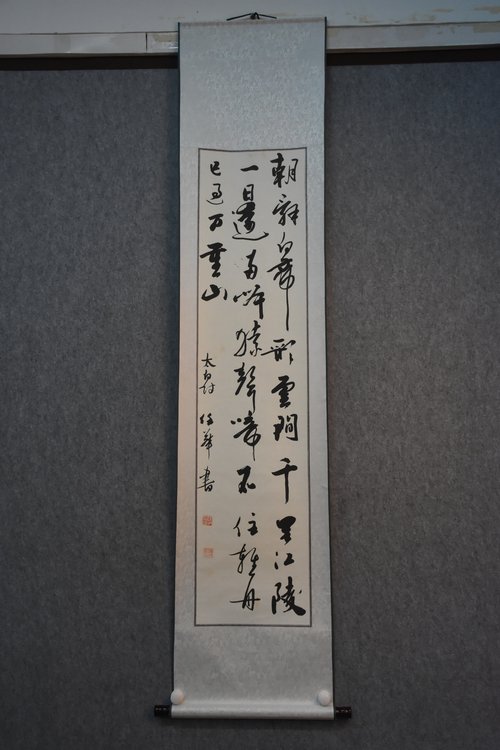 朝辭白帝彩雲間千里江陵
一日還兩岸猿聲啼不住輕舟
已過万重山
太白詩 華書